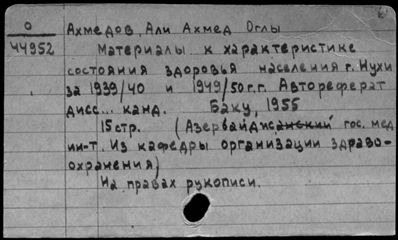 О
44952
Ахмедов, Али Ахмед Оглы
Материалы к характеристике
состояния здоровья населения г. Нухи
за 1939/40 и 1949/50 г.г. Автореферат
дисс... канд. Баку, 1955
15 стр. (Азербайджанский гос. мед
ин-т. Из кафедры организации здраво-
охранения)
На правах рукописи.